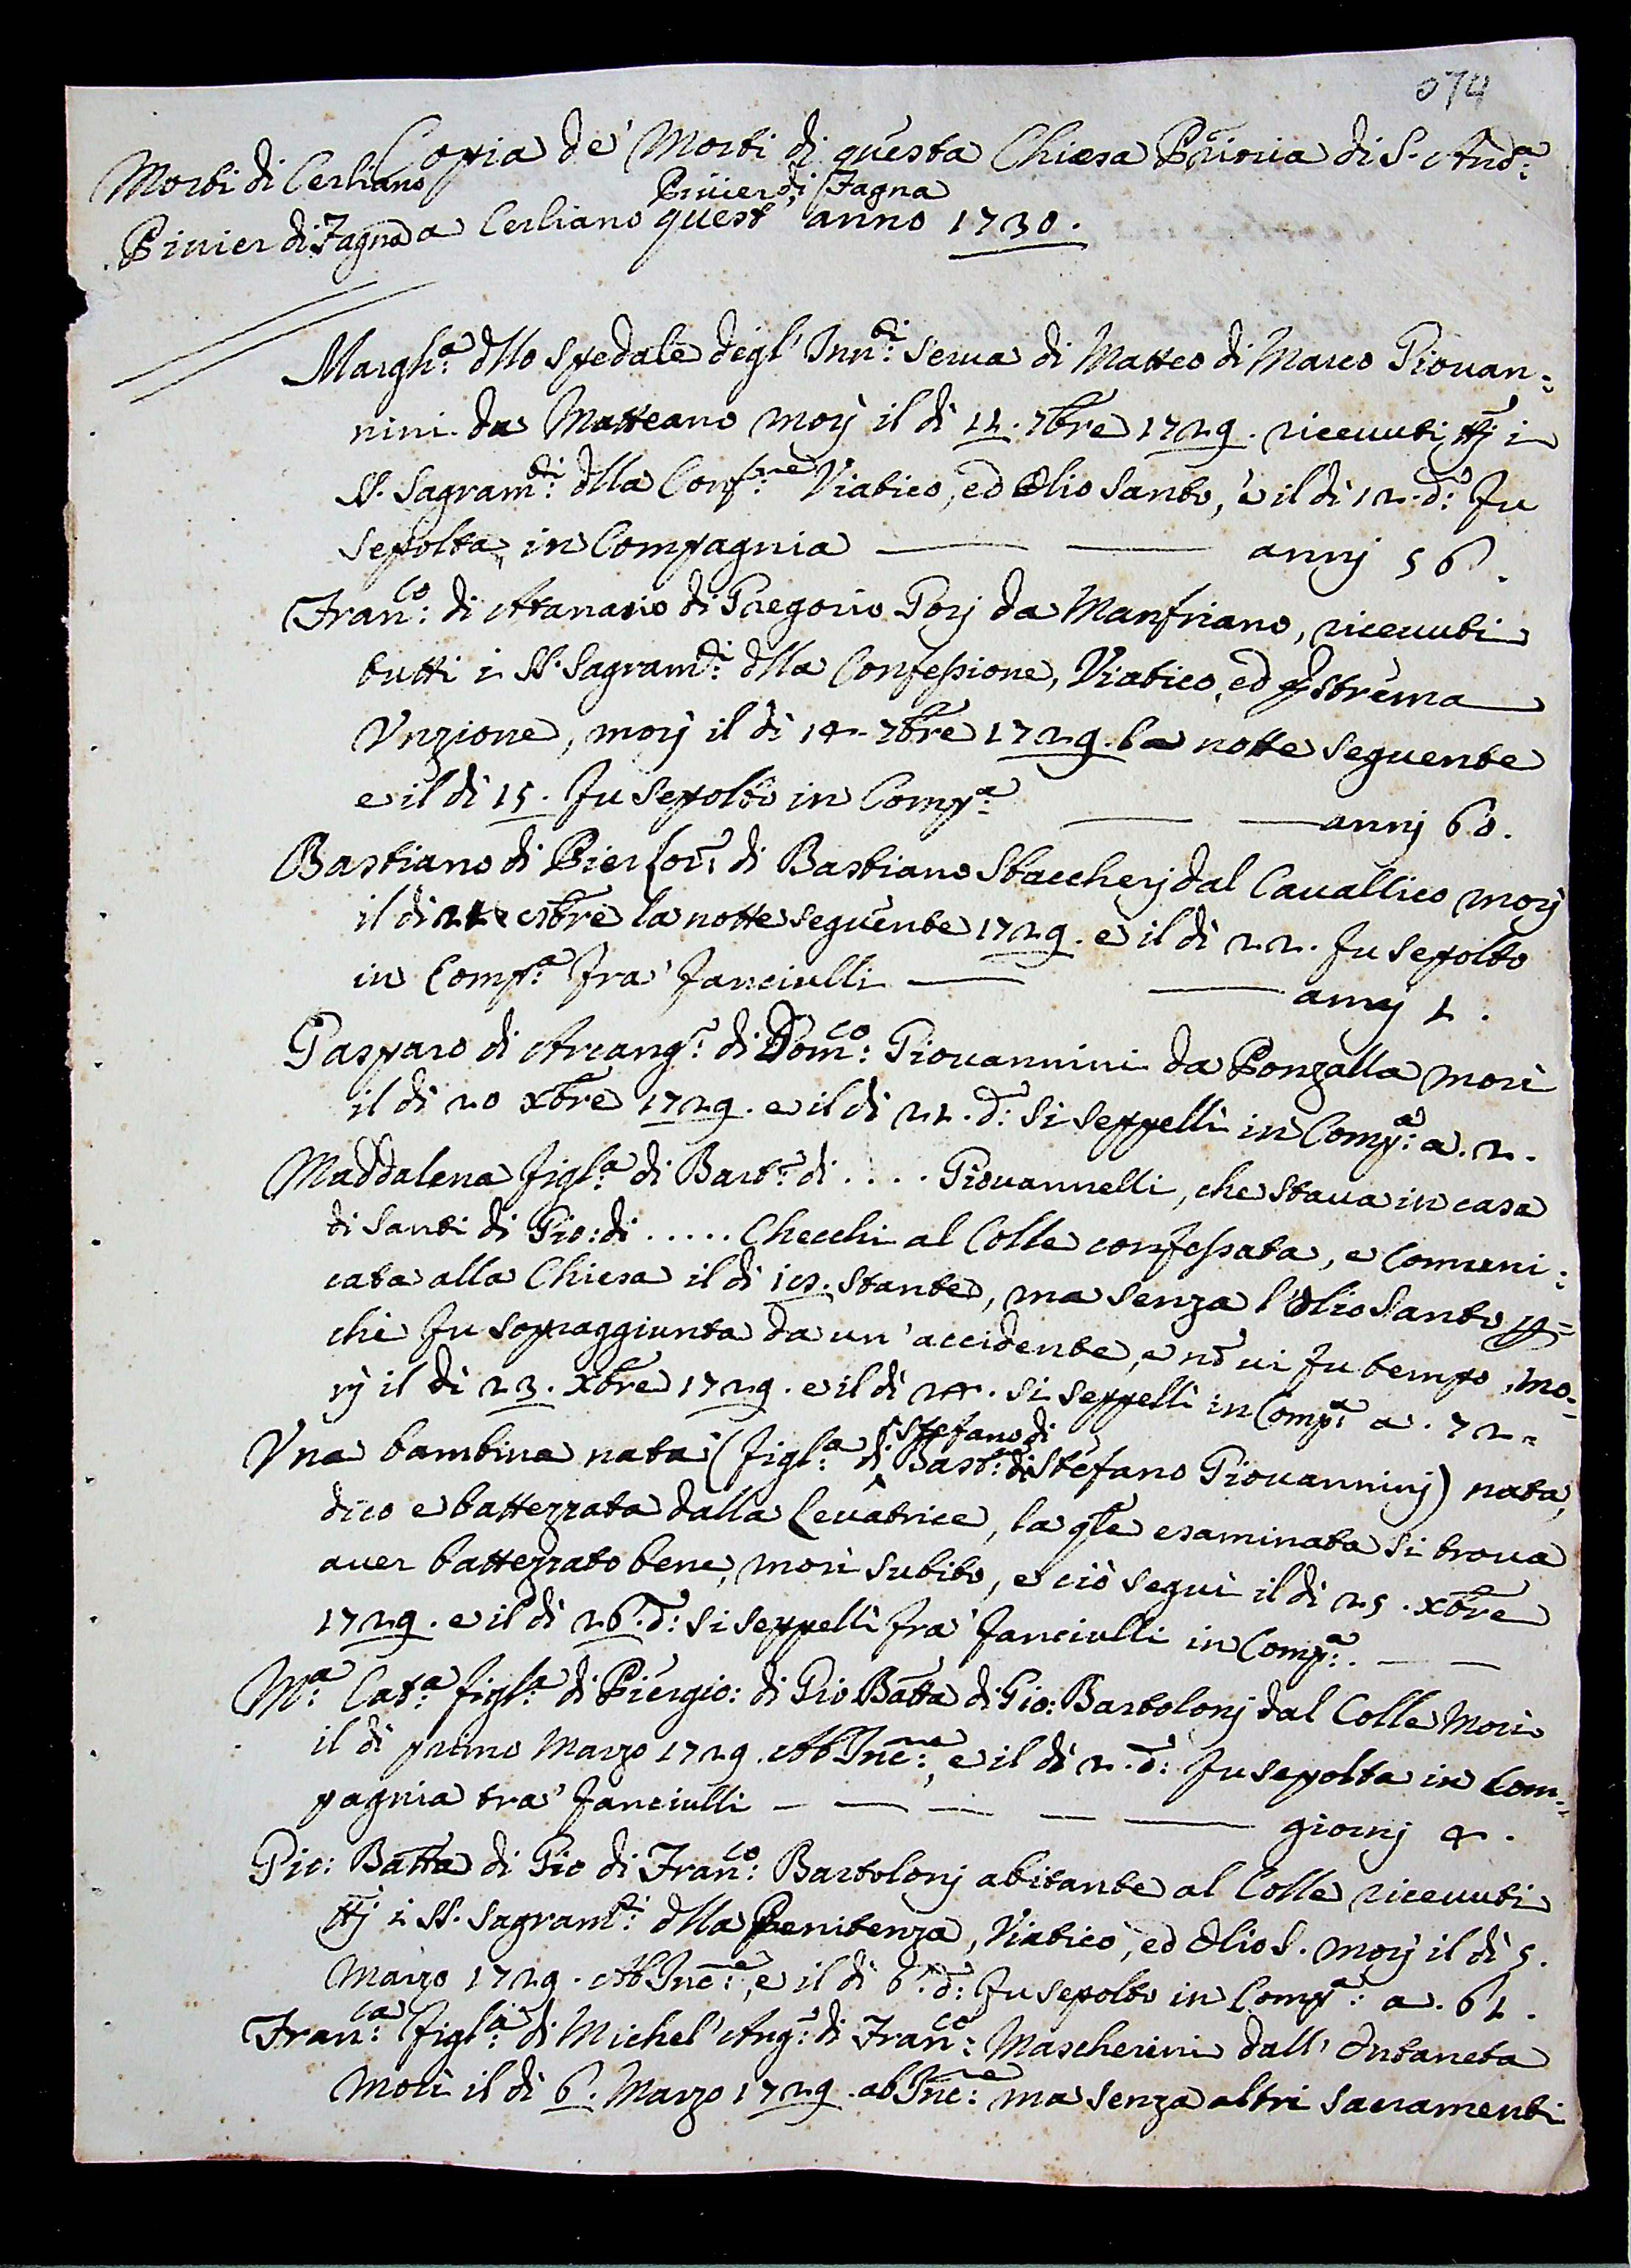 074
Copia de' Morti di questa Chiesa Prioria di S. And.a
Morti di Cerliano
Piuier di Fagna
Piuier di Fagna a Cerliano quest' anno 1730.
Margh.a dllo Spedale degl' Inn.ti serua di Matteo di Marco Giouan=
nini da Matteano morj il dì 11. 7bre 1729. riceuuti ttj i
SS. Sagram.ti dlla Conf.ne Viatico, ed Olio Santo, e il dì 12. d.o fu
sepolta in Compagnia — — annj 56.
Fran.co di Atanasio di Gregorio Gorj da Manfriano, riceuuti
tutti i SS. Sagram.ti dlla Confessione, Viatico, ed Estrema
Vnzione, morj il dì 14. 7bre 1729. la notte seguente
e il dì 15. fu sepolto in Comp.a — — annj 60.
Bastiano di Pier Lor.o di Bastiano Staccherj dal Cauallico morj
il dì 21 9bre la notte seguente 1729. e il dì 22. fu sepolto
in Comp.a fra' fanciulli — — annj 1.
Gasparo di Arcang.o di Dom.co Giouannini da Ponzalla morì
il dì 20 xbre 1729. e il dì 21. d.o si seppellì in Comp.a a. 2.
Maddalena figl.a di Bart.o di .... Giouannelli, che staua in casa
di Santi di Gio: di ..... Checchi al Colle confessata, e comuni=
cata alla Chiesa il dì 18. stante, ma senza l'Olio Santo p=
chè fu sopraggiunta da un' accidente, e nõ ui fu tempo, mo=
rj il dì 23. xbre 1729. e il dì 24. si seppellì in Comp.a a. 72.
Stefano di
Vna bambina nata (figl.a di Bast.o di Stefano Giouanninj) nata,
dico e battezzata dalla Leuatrice, la qle esaminata si troua
auer battezzato bene, morì subito, e ciò seguì il dì 25. xbre
1729. e il dì 26. d.o si seppellì fra' fanciulli in Comp.a. — —
M.a Cat.a figl.a di Piergio: di Gio Batta di Gio: Bartolonj dal Colle Morì
il dì primo Marzo 1729. Ab Inc.ne, e il dì 2. d.o fu sepolta in Com=
pagnia tra' fanciulli — — — — — giornj 4.
Gio: Batta di Gio di Fran.co Bartolonj abitante al Colle riceuuti
ttj i SS. Sagram.ti dlla Penitenza, Viatico, ed Olio S. morj il dì 5.
Marzo 1729. Ab Inc.ne, e il dì 6. d.o fu sepolto in Comp.a a. 61.
Fran.ca figl.a di Michel' Ang.o di Fran.co Mascherini dall' Ontaneta
Morì il dì 6. Marzo 1729. ab Inc.ne ma senza altri sacramenti